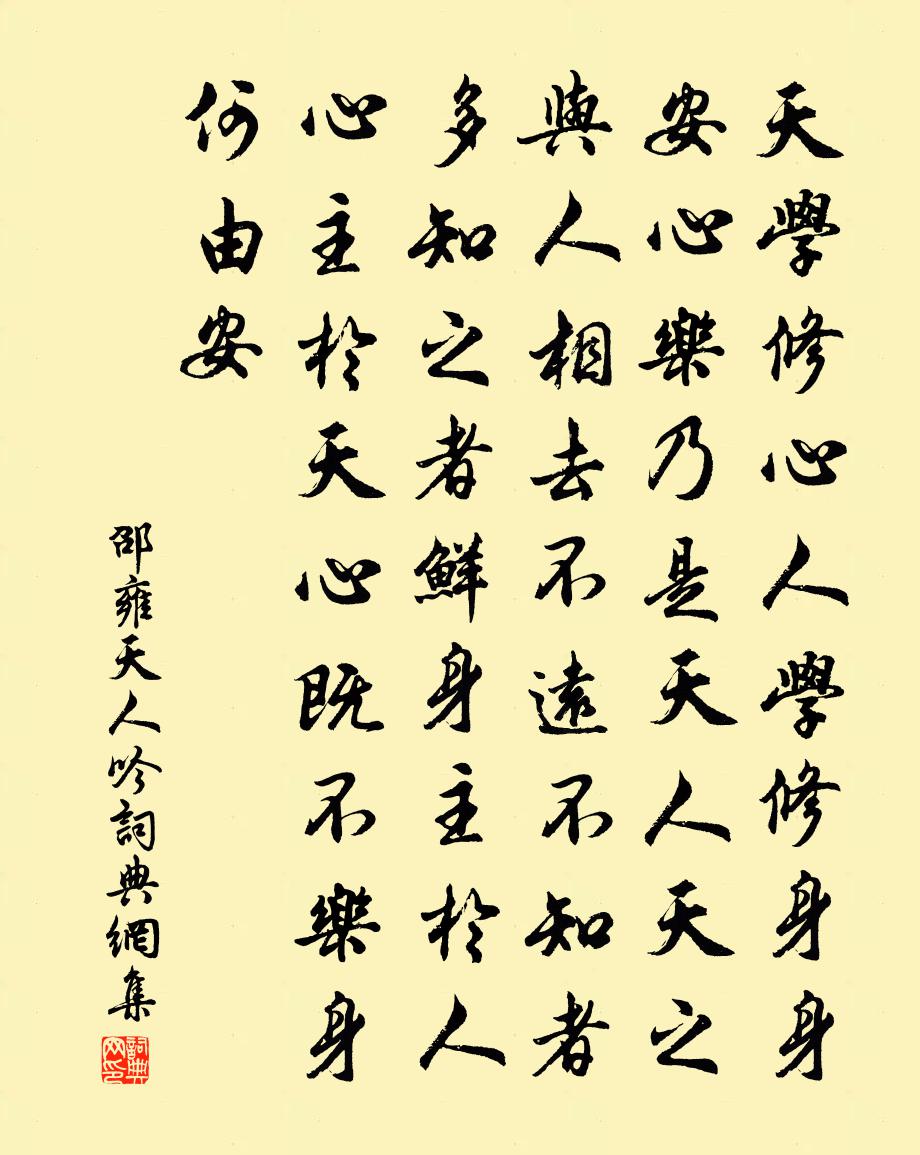 天學修心人學修身身
安心樂乃是天人天之
與人相去不遠不知者
多知之者鮮身主於人
心主於天心既不樂身
何由安
邵雍天人吟詞典網集
詞典
网印